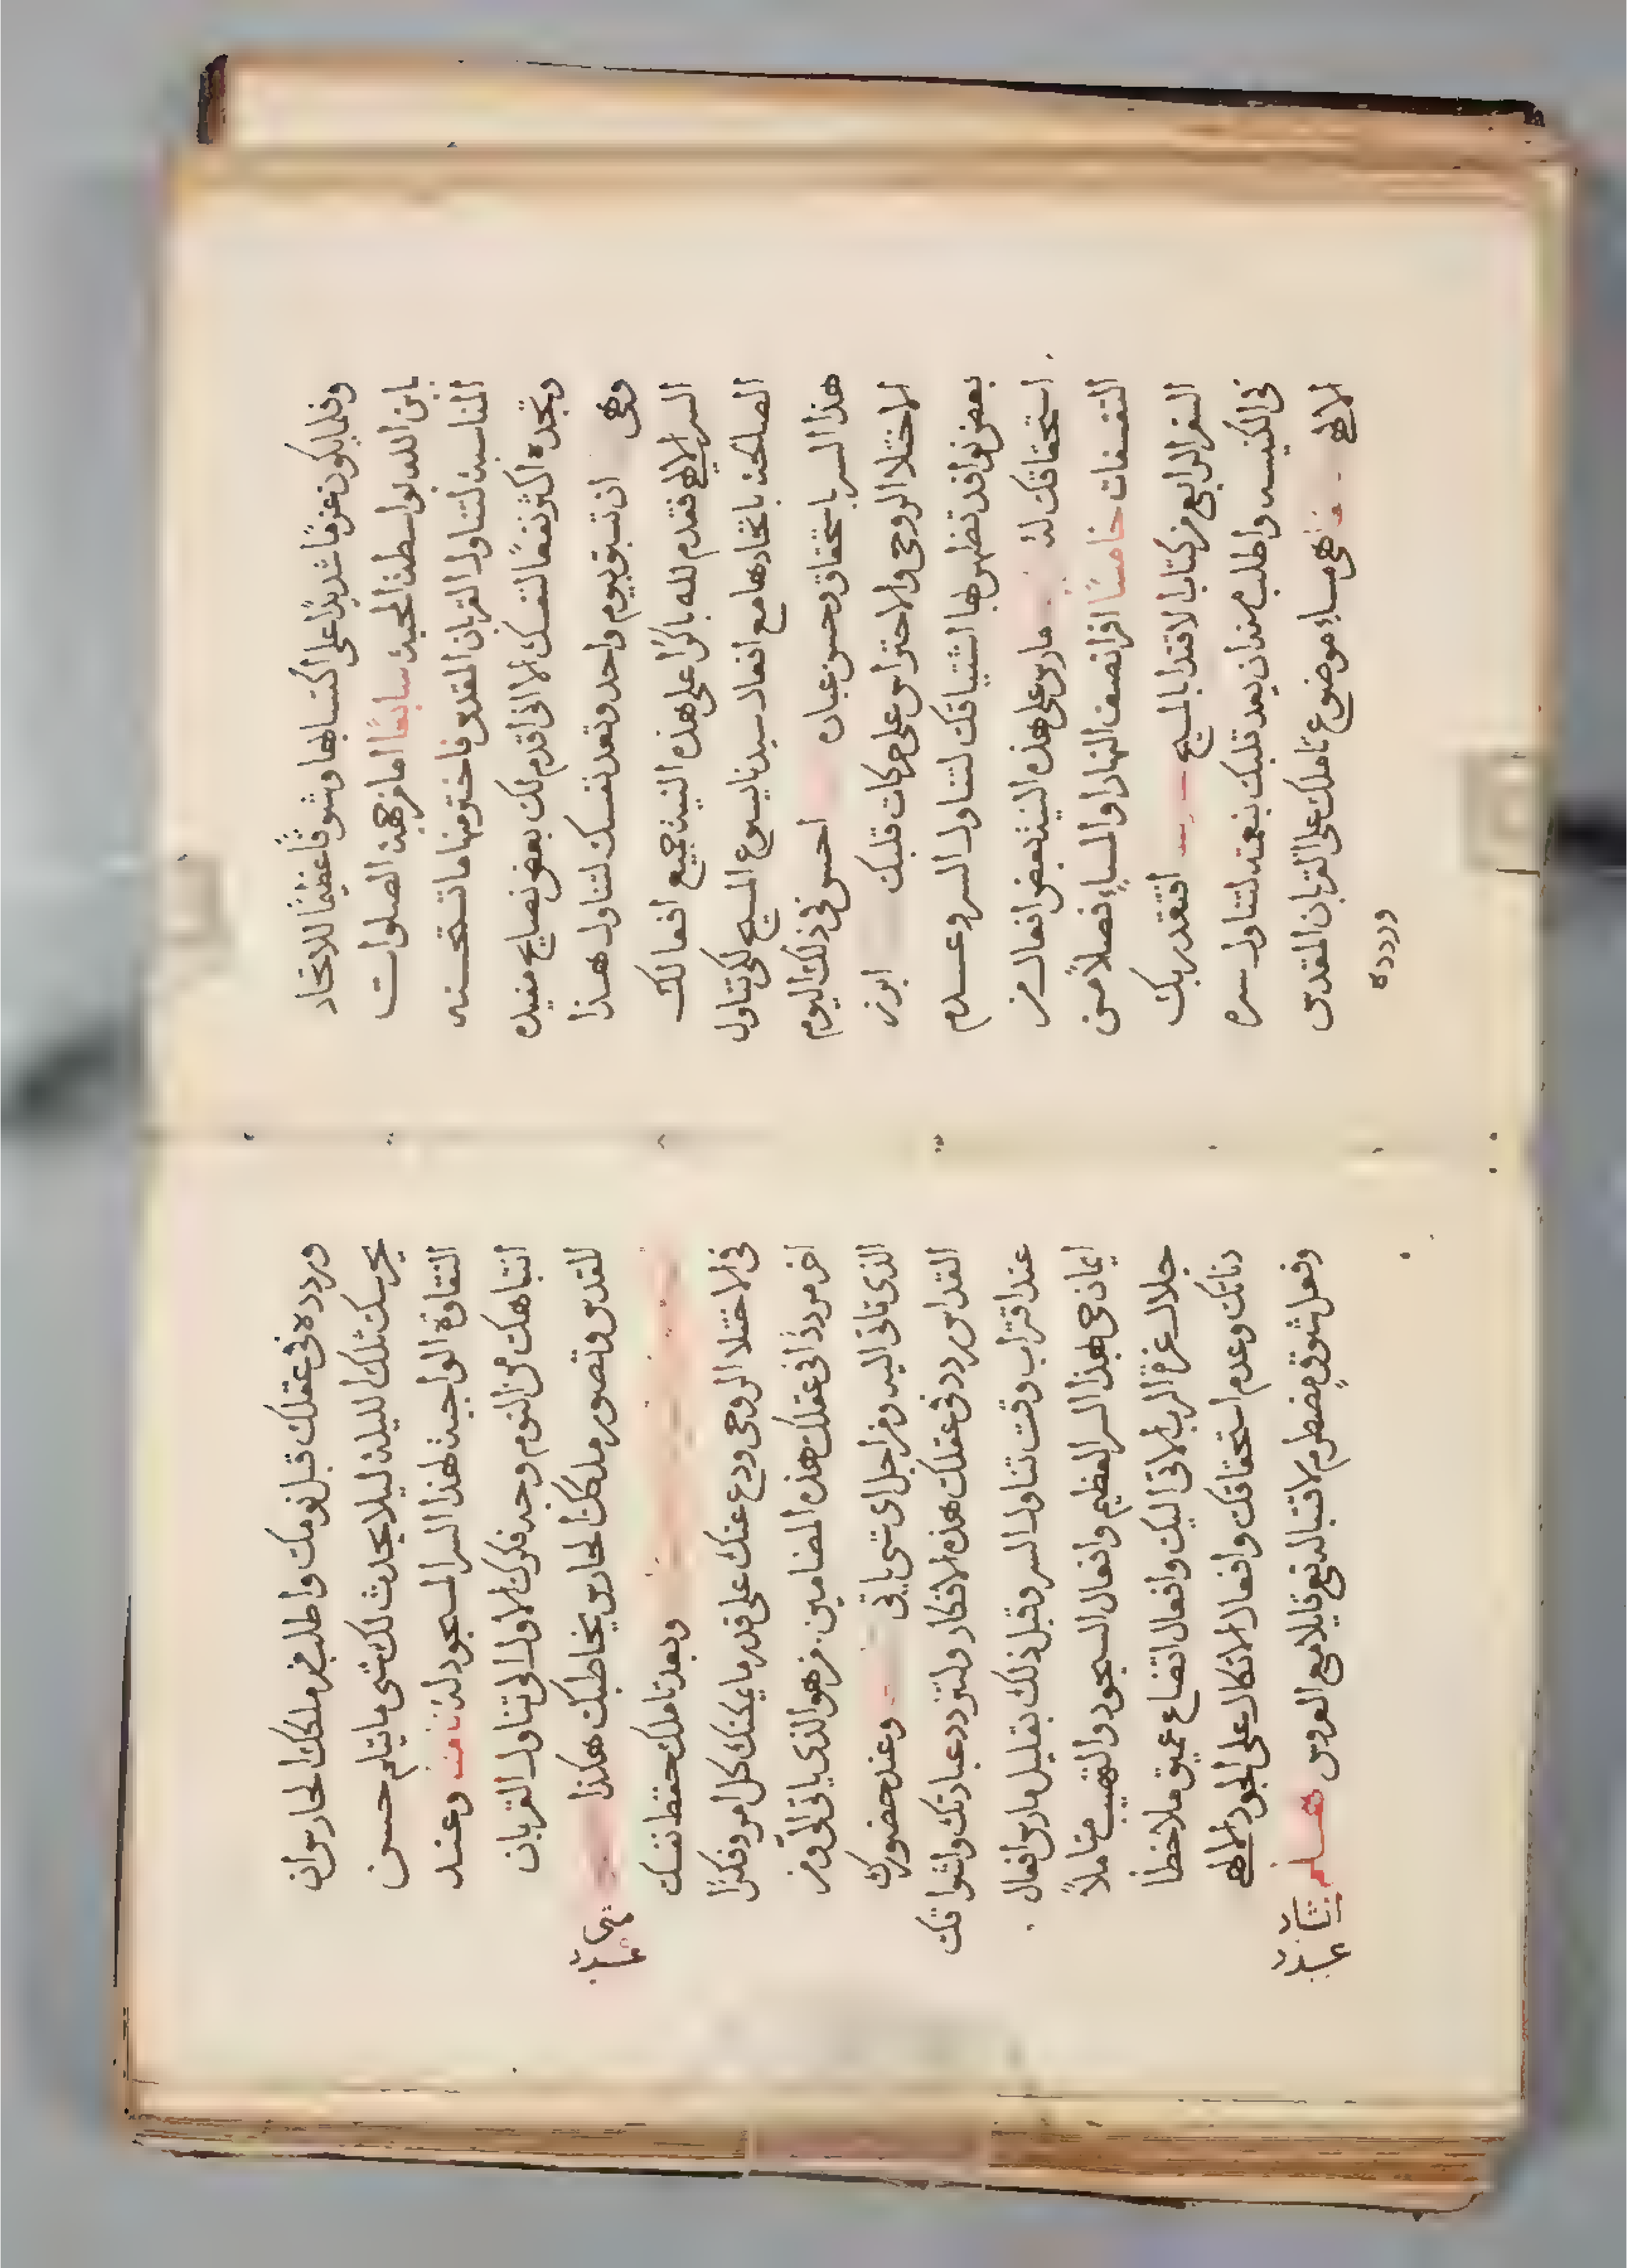 وفلما يكون عزمًا شديدًا على اكتسابها وشوقًا عظيمًا للاتحاد
بابن الله بواسطة المحبة سابعًا اما من جهة الصلوات
المناسبة لتناول القربان المقدس فاختر منها ما تستحسنه
وتجده اكثر نفعًا لنفسك الا انى اقدم لك بعض نصايح مفيده
وهى ان تسبق بيوم واحد وتعد نفسك لتناول هذا
السر الالهى فقدم لله باكرًا على هذه النية جميع افعالك
الصالحه باتحادها مع افعال سيدنا يسوع المسيح لكى تتناول
هذا السر باستحقاق وحسن عباده احسن فى ذلك اليوم
الاختلا الروحى والاحتراس على حركات قلبك ابرز
بعض نوافد تظهر بها اشتياقك لتناول السر وعدم
استحقاقك له مارس على هذه النية بعض افعال من
التقشفات خامسًا اقرا نصف النهار او المساء فصلاً من
السفر الرابع من كتاب الاقتدا بالمسيح افتقد ربك
فى الكنيسه واطلب منه ان يعد قلبك بنعمته لتناول سره
الالهى هى مساء موضوع تاملك على القربان المقدس
وردده
وردده فى عقلك قبل نومك واطلب من ملاكك الحارس ان
يحرسك تلك الليلة ليلا يحدث لك شى ما يثلم حسن
النقاوة الواجبة لهذا السر المسجود له ثامنه وعند
انتباهك من النوم وجه فكرك الاول الى تناول القربان
المقدس وتصور ملاكك الحارس يخاطبك هكذا
وبعد تاملك حفظ نفسك
فى الاختلا الروحى ودع عنك على قدر ما يمكنك كل امر وفكرًا
اخر مرددًا فى عقلك هذه المضامين من هو الذى ياتى الىّ ومن
الذى تاتى اليه ومن اجل اى شى ياتى وعند حضورك
القداس ردد فى عقلك هذه الافكار ولتزدد عبادتك واشواقك
عند اقتراب وقت تناول السر وقبل ذلك بقليل مارس افعال
ايمان حى بهذا السر العظيم وافعال السجود والتهيب متاملاً
جلال عزة الرب الاتى اليك وافعال اتضاع عميق ملاحظًا
دناتك وعدم استحقاقك وافعال الاتكال على الجود الالهى
وفعل شوقٍ مضطرم لاقتباله نعم قايلا مع العروس هلم